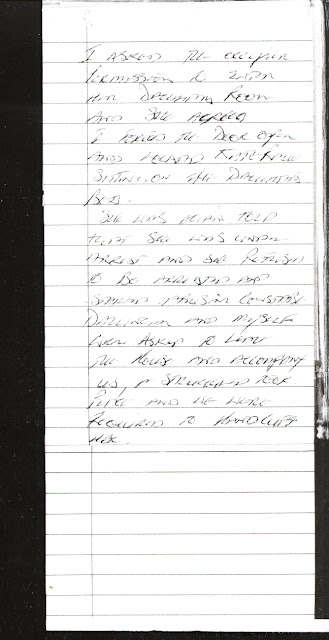 I ASKED THE OCCUPIER
PERMISSION TO ENTER
HER DAUGHTERS ROOM
AND SHE AGREED
I FORCED THE DOOR OPEN
AND LOCATED
SITTING ON THE DAUGHTERS
BED.
SHE WAS AGAIN TOLD
THAT SHE WAS UNDER
ARREST AND SHE REFUSED
TO BE ARRESTED AND
CONSTABLE
AND MYSELF
WERE ASKED TO LEAVE
THE HOUSE AND ACCOMPANY
US, A STRUGGLE TOOK
PLACE AND WE WERE
REQUIRED TO HANDCUFF
HER.